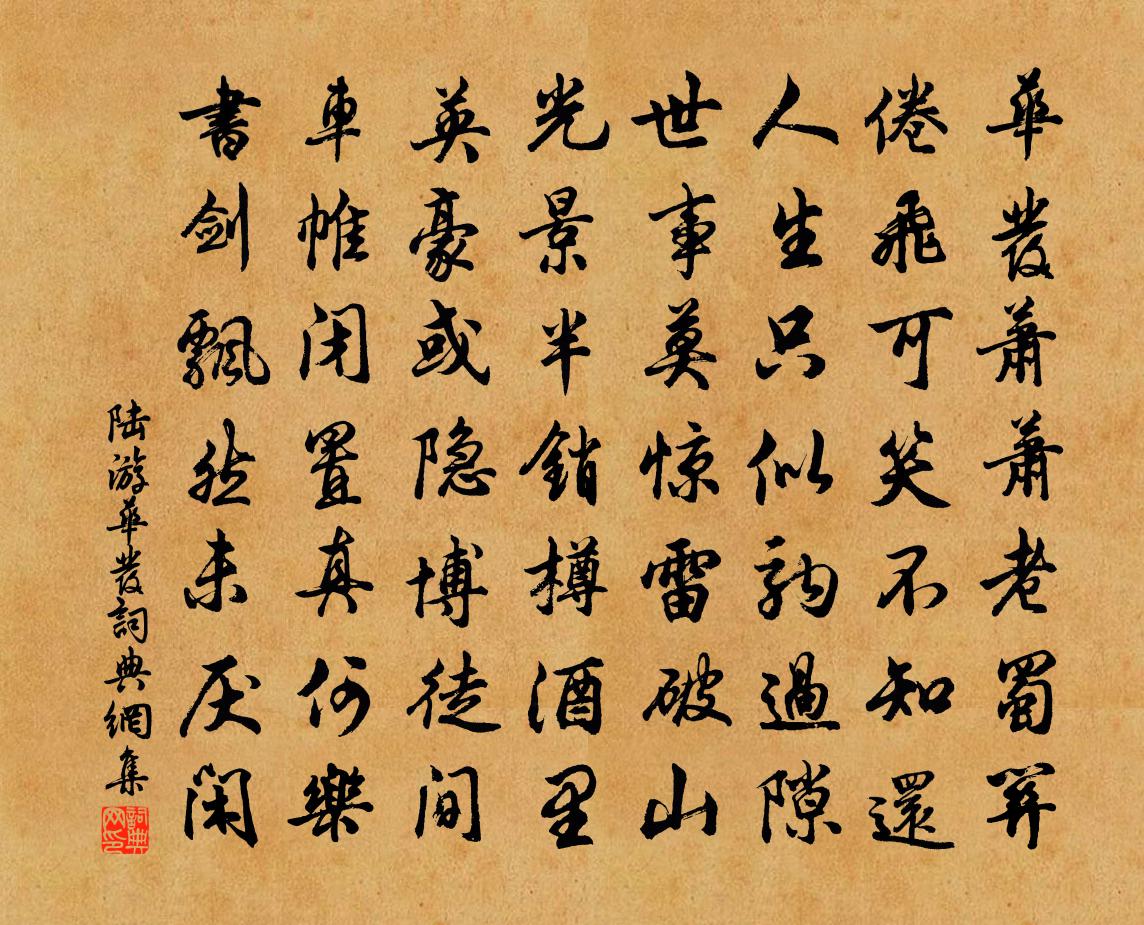 華發蕭蕭老蜀關
倦飛可笑不知還
人生只似駒過隙
世事莫惊雷破山
光景半銷樽酒里
英豪或隐博徒间
車帷闭置真何樂
書剑飄然未厌闲
陆游華發詞典網集
詞典网印